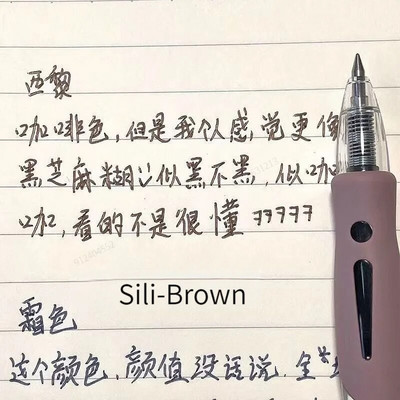 西黎
咖啡色,但是我个人感觉更像
黑芝麻糊;;似黑不黑,似咖
咖,看的不是很懂ㄱㄱㄱㄱㄱ
Sili-Brown
霜色
这个颜色,颜值没话说.全